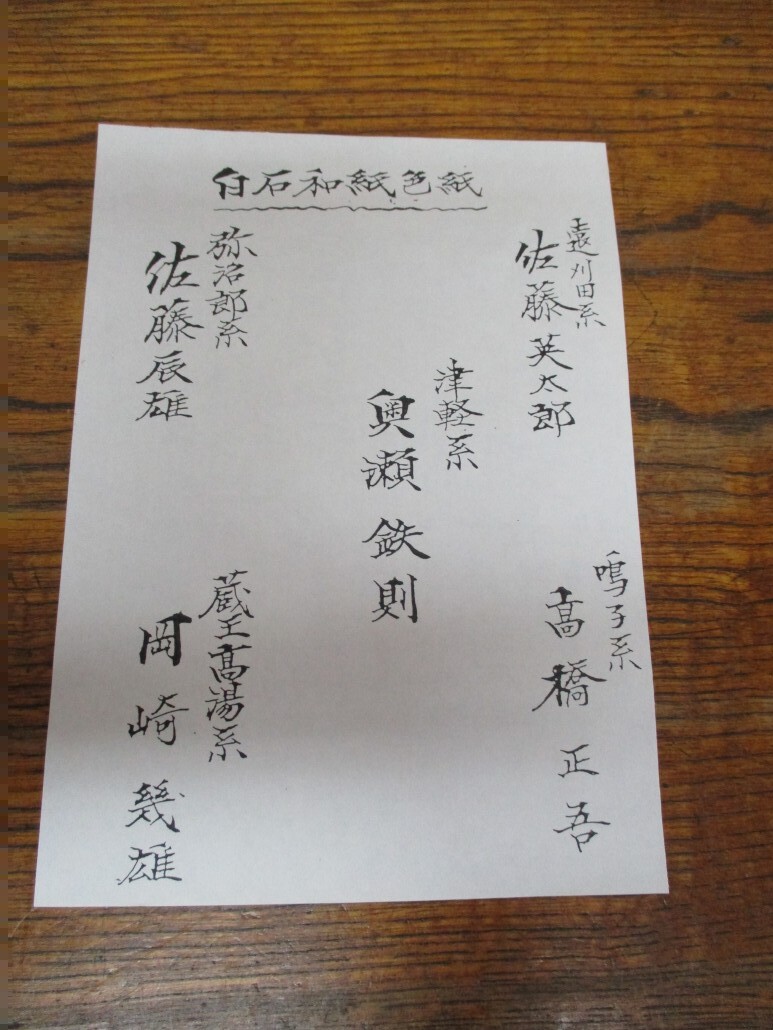 白石和紙色紙
遠刈田系
佐藤英太郎
鳴子系
高橋正吾
津軽系
奥瀬鉄則
弥治郎系
佐藤辰雄
蔵王高湯系
岡崎幾雄